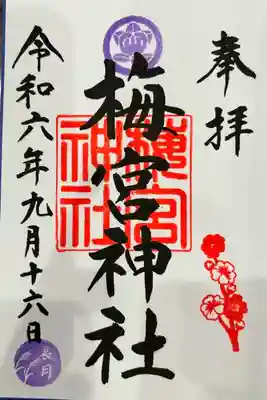 奉拝
梅宮神社
梅宮神社
令和六年九月十六日
長月